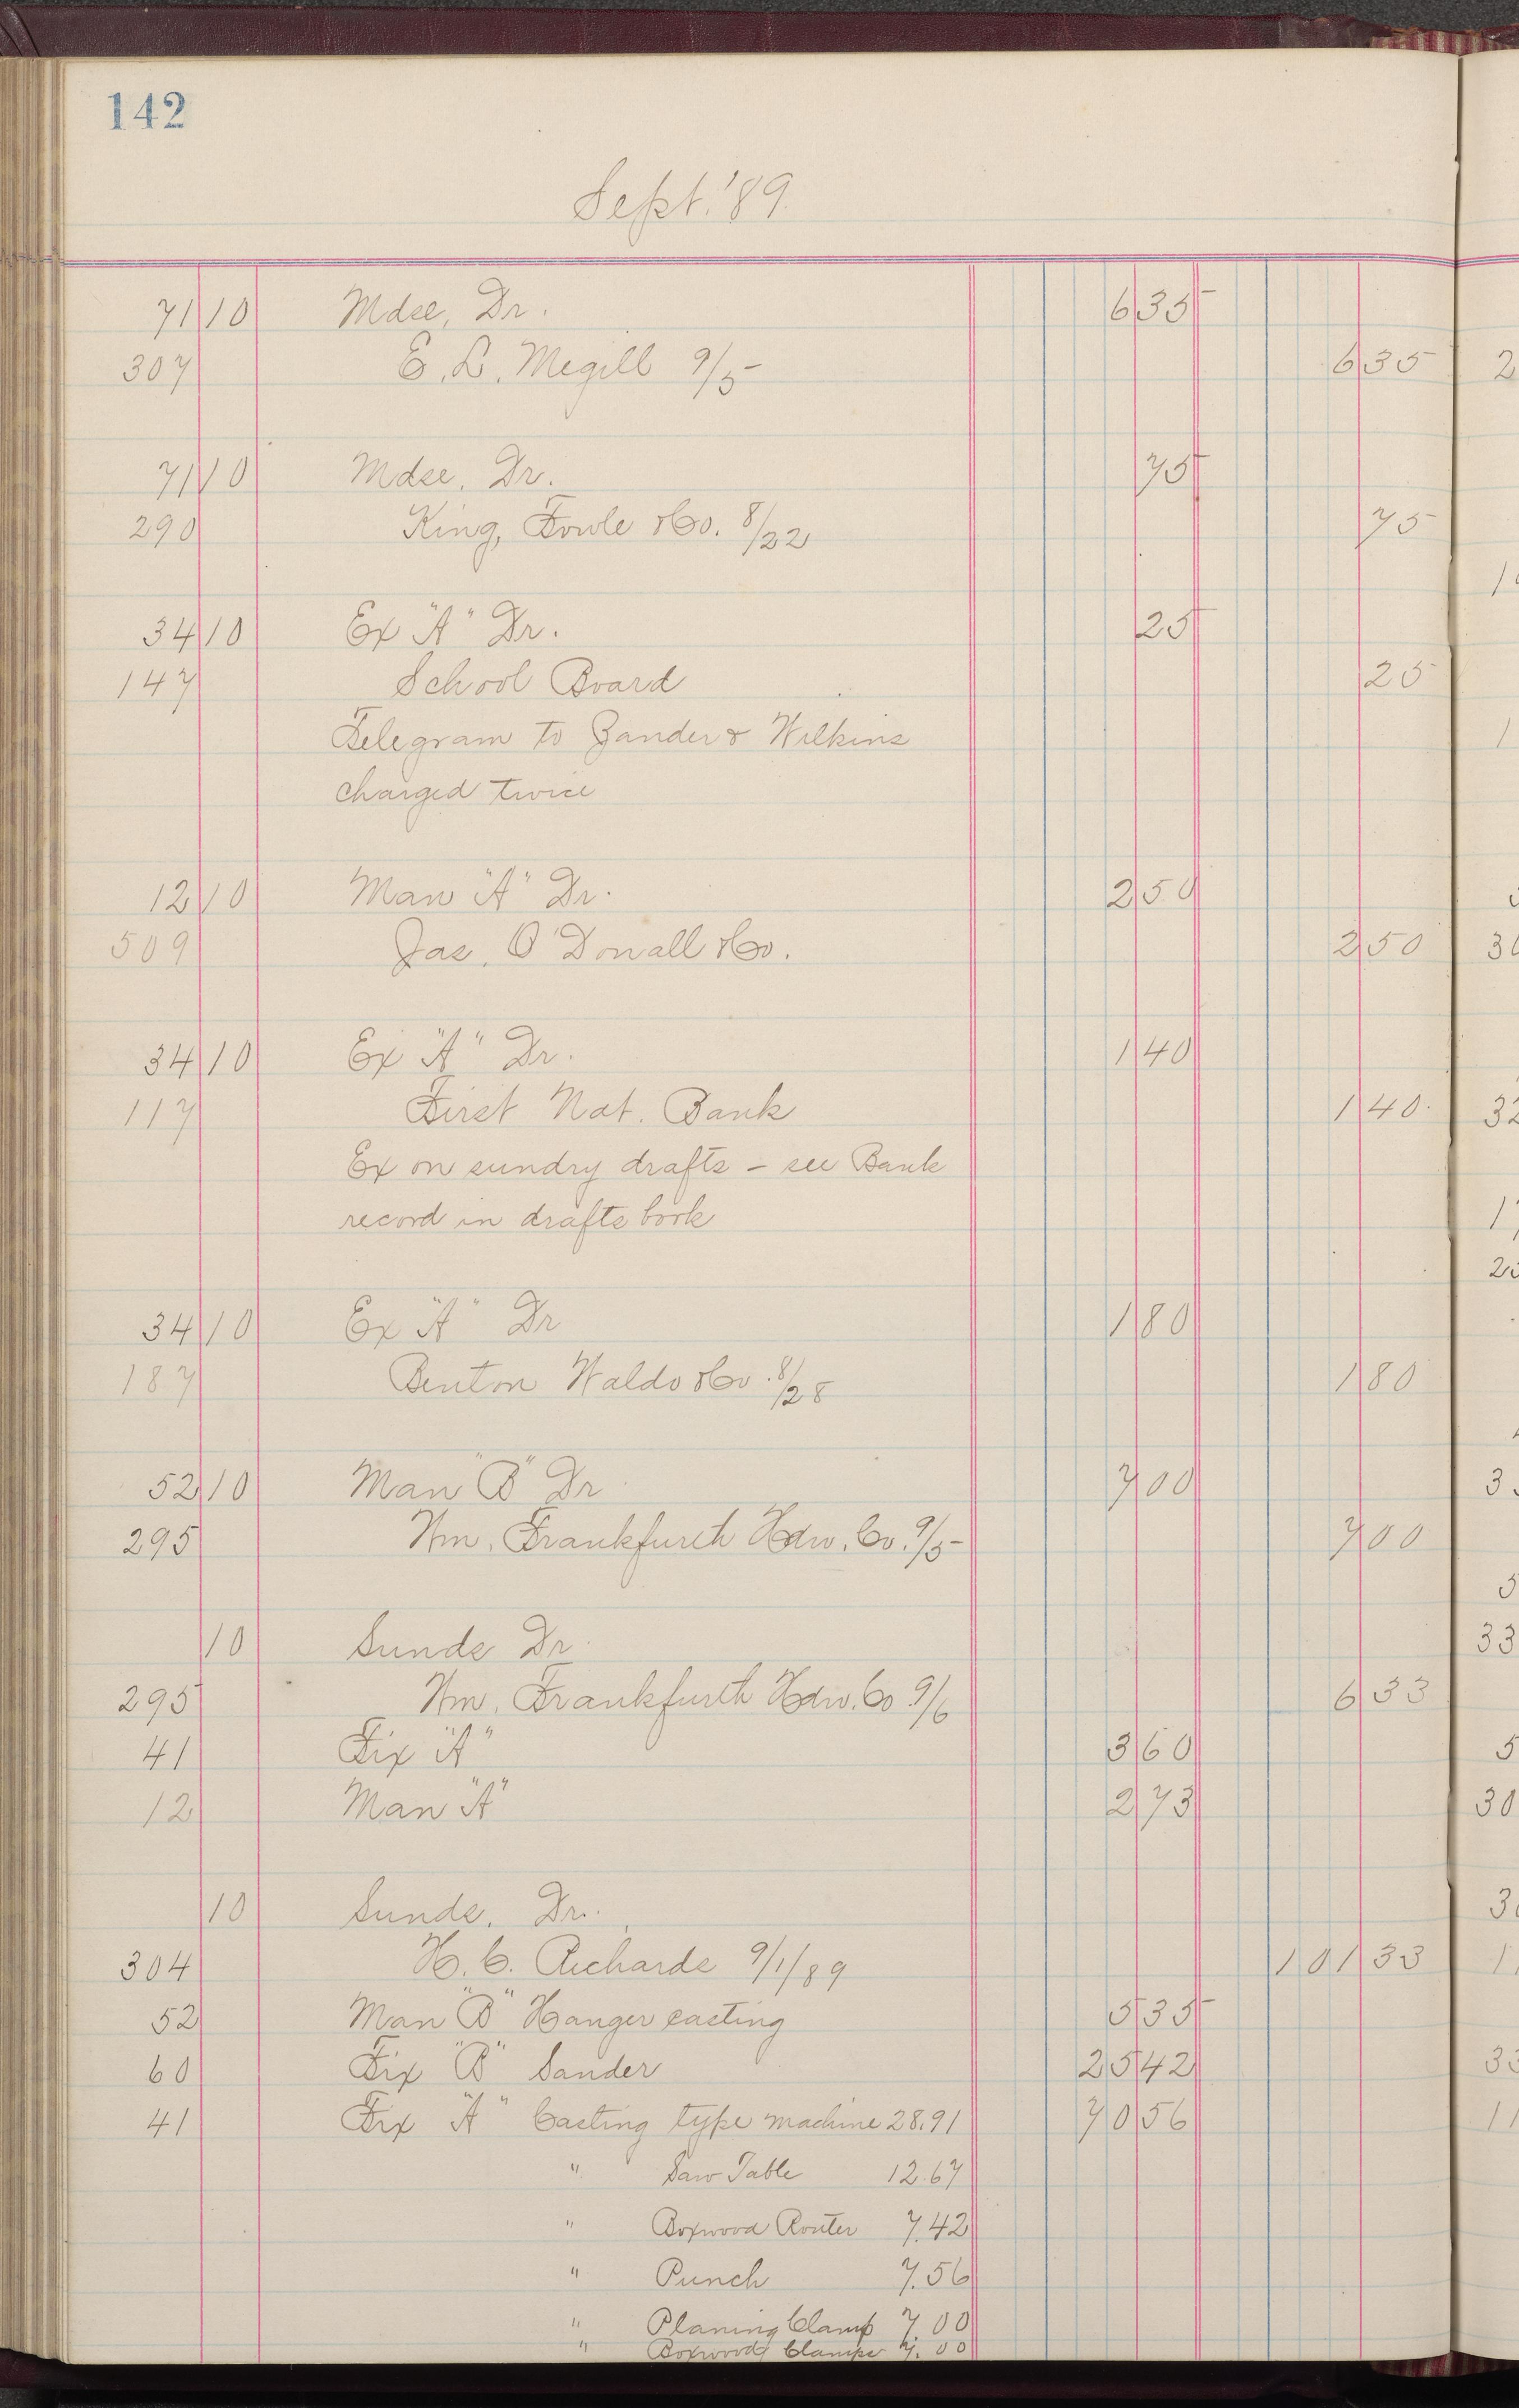 142
Sept. '89.
71 10 Mdse, Dr. 6 35
307 E. L. Megill 9/5 6 35
71 10 Mdse. Dr. 75
290 King, Fowle & Co. 8/22 75
34 10 Ex "A" Dr. 25
147 School Board 25
Telegram to Zander & Wilkins
charged twice
12 10 Man "A" Dr. 2 50
509 Jas. O'Donall & Co. 2 50
34 10 Ex "A" Dr. 1 40
117 First Nat. Bank 1 40
Ex on sundry drafts – see Bank
record in drafts book
34 10 Ex "A" Dr 1 80
187 Benton Waldo & Co. 8/28 1 80
52 10 Man "B" Dr 7 00
295 Wm. Frankfurth Hdw. Co. 9/5 7 00
10 Sunds Dr.
295 Wm. Frankfurth Hdw. Co 9/6 6 33
41 Fix "A" 3 60
12 Man "A" 2 73
10 Sunds. Dr.
304 H. C. Richards 9/1/89 101 33
52 Man "B" Hanger casting 5 35
60 Fix "B" Sander 25 42
41 Fix "A" Casting type machine 28.91 70 56
" Saw Table 12.67
" Boxwood Router 7.42
" Punch 7.56
" Planing Clamp 7.00
" Boxwood Clamps 7.00